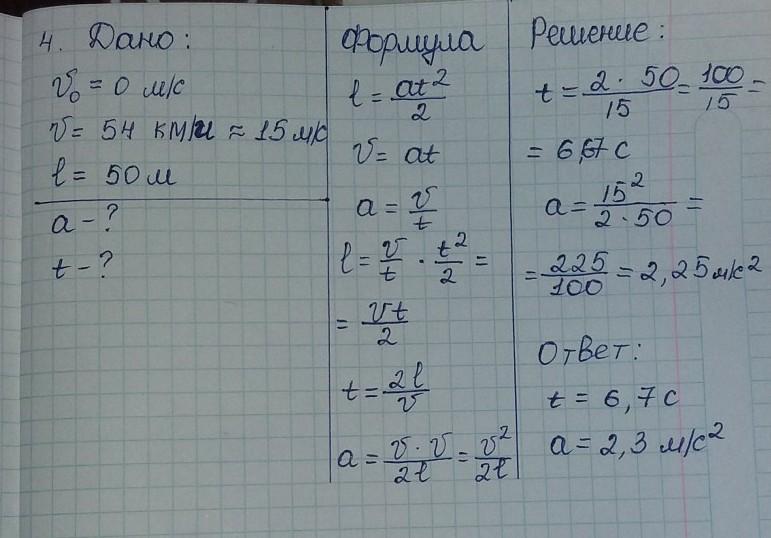 4. Дано:
v₀ = 0 м/с
v = 54 км/ч ≈ 15 м/с
l = 50 м
a - ?
t - ?
Формула
l = at²/2
v = at
a = v/t
l = v/t · t²/2 =
= vt/2
t = 2l/v
a = v·v/2l = v²/2l
Решение:
t = 2·50/15 = 100/15 =
= 6,67 с
a = 15²/2·50 =
= 225/100 = 2,25 м/с²
Ответ:
t = 6,7 с
a = 2,3 м/с²